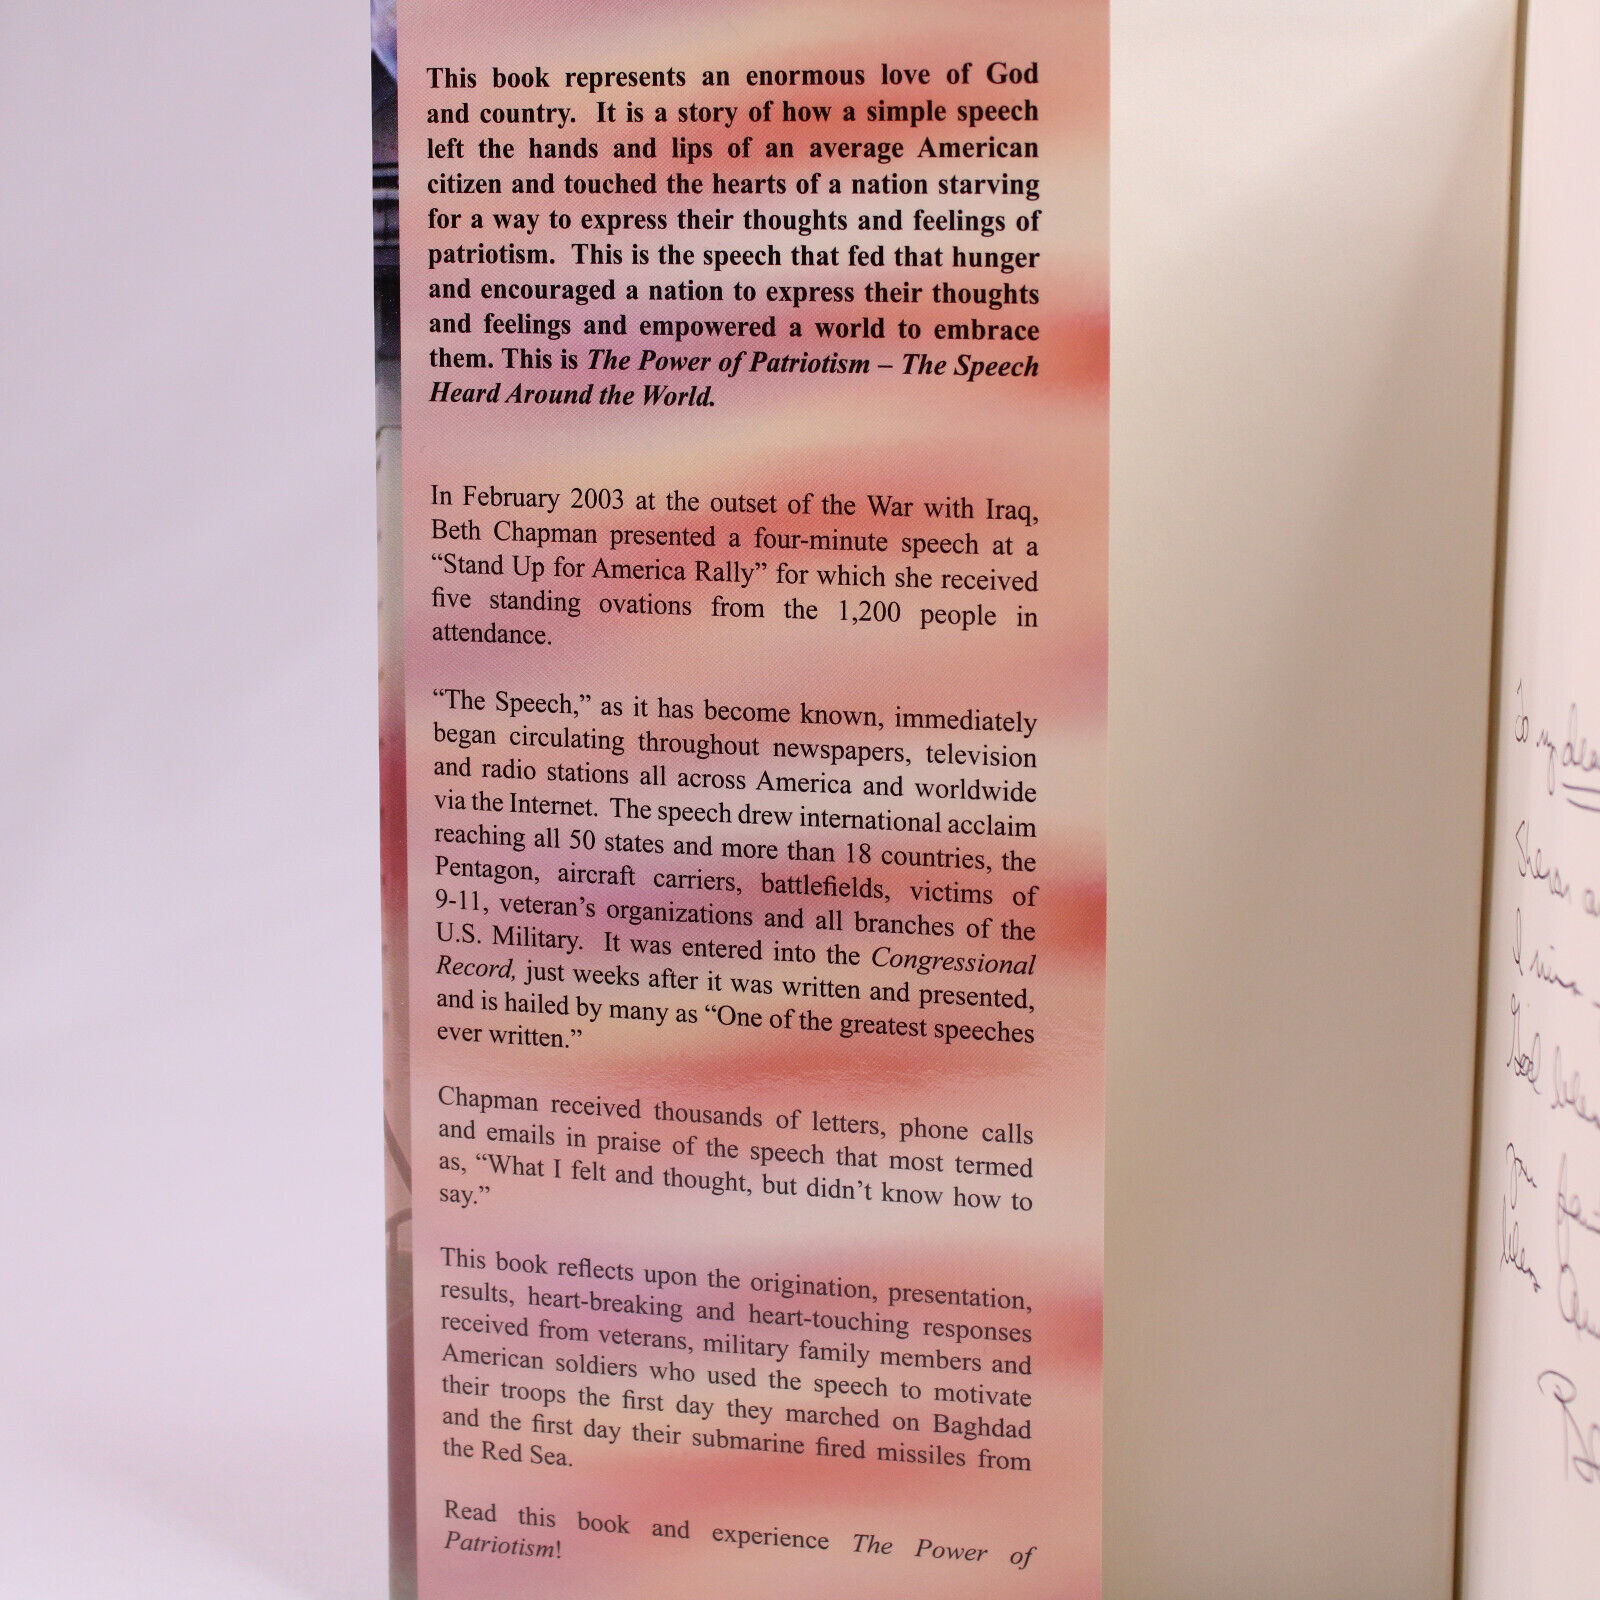 This book represents an enormous love of God
and country. It is a story of how a simple speech
left the hands and lips of an average American
citizen and touched the hearts of a nation starving
for a way to express their thoughts and feelings of
patriotism. This is the speech that fed that hunger
and encouraged a nation to express their thoughts
and feelings and empowered a world to embrace
them. This is The Power of Patriotism – The Speech
Heard Around the World.
In February 2003 at the outset of the War with Iraq,
Beth Chapman presented a four-minute speech at a
“Stand Up for America Rally” for which she received
five standing ovations from the 1,200 people in
attendance.
“The Speech,” as it has become known, immediately
began circulating throughout newspapers, television
and radio stations all across America and worldwide
via the Internet. The speech drew international acclaim
reaching all 50 states and more than 18 countries, the
Pentagon, aircraft carriers, battlefields, victims of
9-11, veteran’s organizations and all branches of the
U.S. Military. It was entered into the Congressional
Record, just weeks after it was written and presented,
and is hailed by many as “One of the greatest speeches
ever written.”
Chapman received thousands of letters, phone calls
and emails in praise of the speech that most termed
as, “What I felt and thought, but didn’t know how to
say.”
This book reflects upon the origination, presentation,
results, heart-breaking and heart-touching responses
received from veterans, military family members and
American soldiers who used the speech to motivate
their troops the first day they marched on Baghdad
and the first day their submarine fired missiles from
the Red Sea.
Read this book and experience The Power of
Patriotism!
To my
I
God